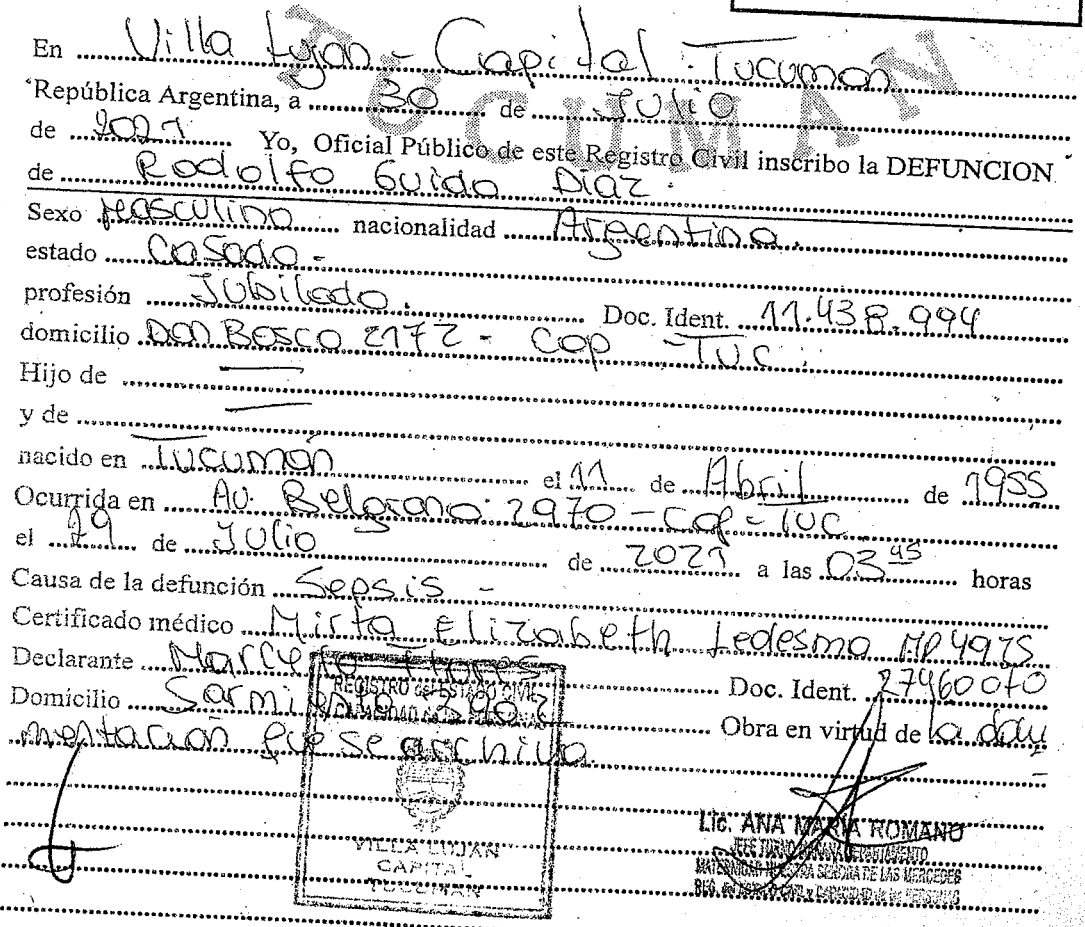 TUCUMAN
En Villa Lujan - Capital - Tucuman
República Argentina, a 30 de Julio
de 2021 Yo, Oficial Público de este Registro Civil inscribo la DEFUNCION
de Rodolfo Guido Diaz.
Sexo Masculino nacionalidad Argentina.
estado Casado -
profesión Jubilado. Doc. Ident. 11.438.994
domicilio Don Bosco 2172 - Cap - TUC.
Hijo de —
y de —
nacido en Tucumán el 11 de Abril de 1955
Ocurrida en Av. Belgrano 2970 - Cap - TUC
el 29 de Julio de 2021 a las 03 45 horas
Causa de la defunción Sepsis -
Certificado médico Mirta Elizabeth Ledesma MP 4975
Declarante Marcelo Doc. Ident. 27960070
Domicilio Sarmiento Obra en virtud de la docu
mentación que se archiva.
REGISTRO del ESTADO CIVIL
VILLA LUJAN
CAPITAL
TUCUMAN
Lic. ANA MARIA ROMANO
MATERNIDAD NUESTRA SEÑORA DE LAS MERCEDES
REG. del ESTADO CIVIL y CAPACIDAD de las PERSONAS